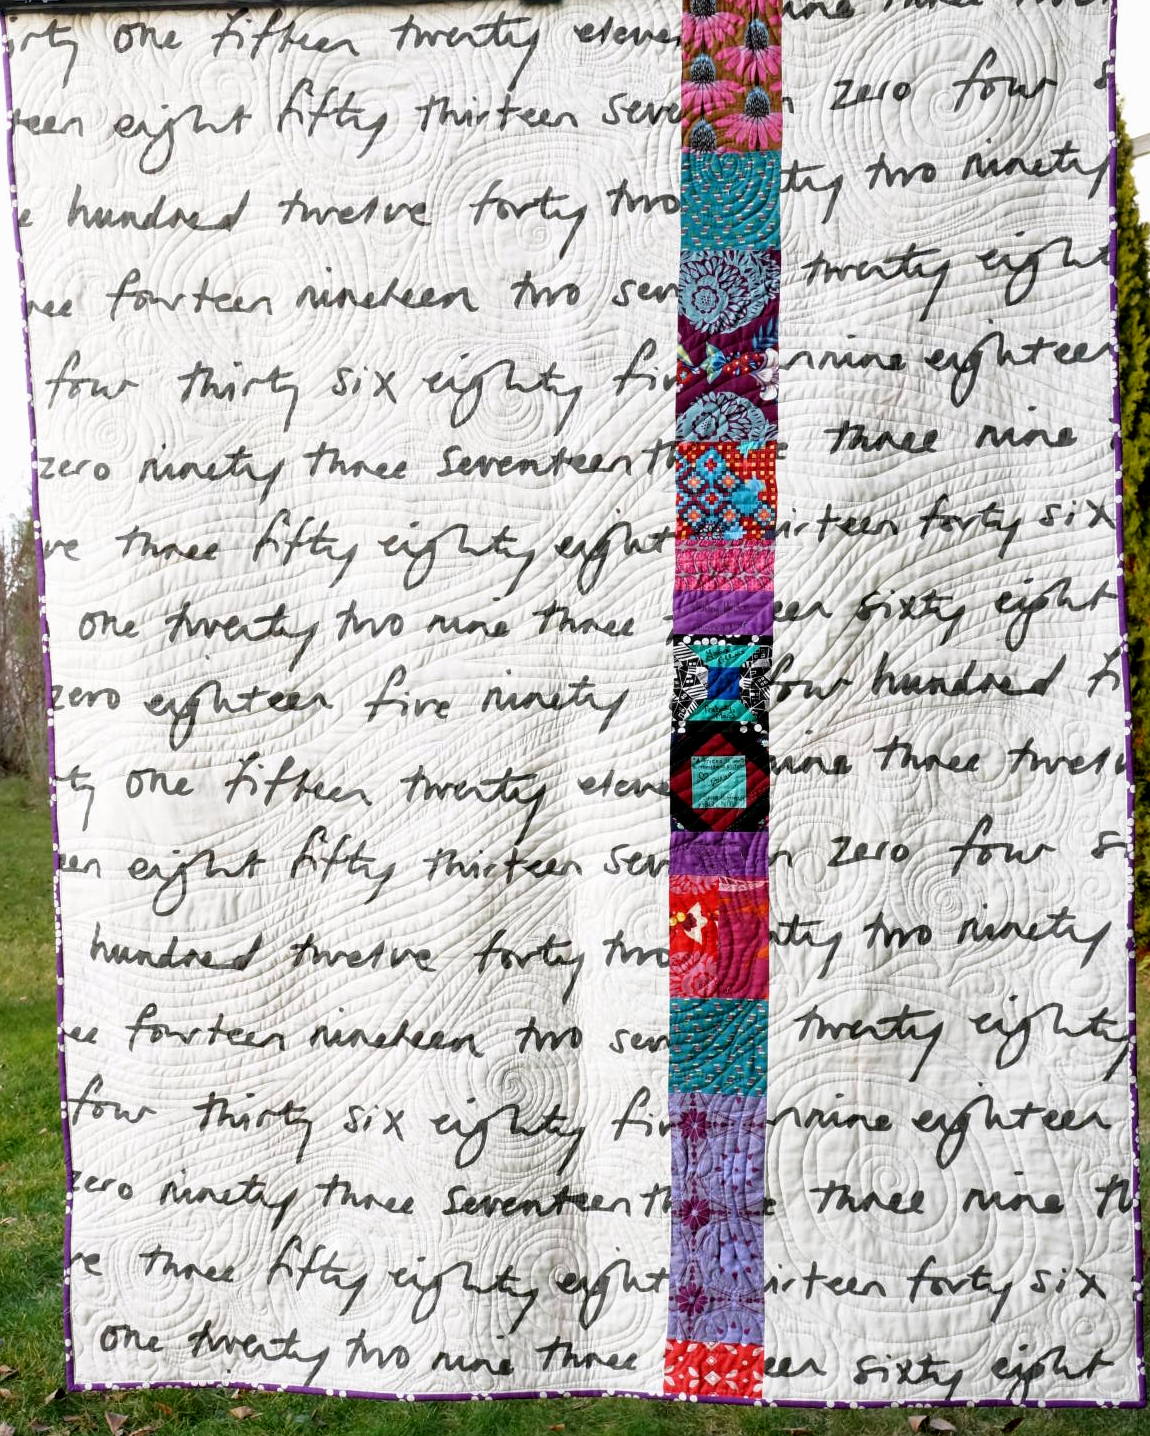 one fifteen twenty eleven nine three
eight fifty thirteen seve zero four
hundred twelve forty two ty two ninety
fourteen nineteen two sev twenty eight
four thirty six eighty fiv nine eighteen
zero ninety three seventeen th three nine
three fifty eighty eight irteen forty six
one twenty two nine three een sixty eight
zero eighteen five ninety four hundred fi
ty one fifteen twenty eleve nine three twelv
een eight fifty thirteen sev n zero four
hundred twelve forty two ty two ninety
ee fourteen nineteen two sev twenty eighty
four thirty six eighty fiv nine eighteen
zero ninety three seventeen th three nine th
ve three fifty eighty eight irteen forty six
one twenty two nine three een sixty eight